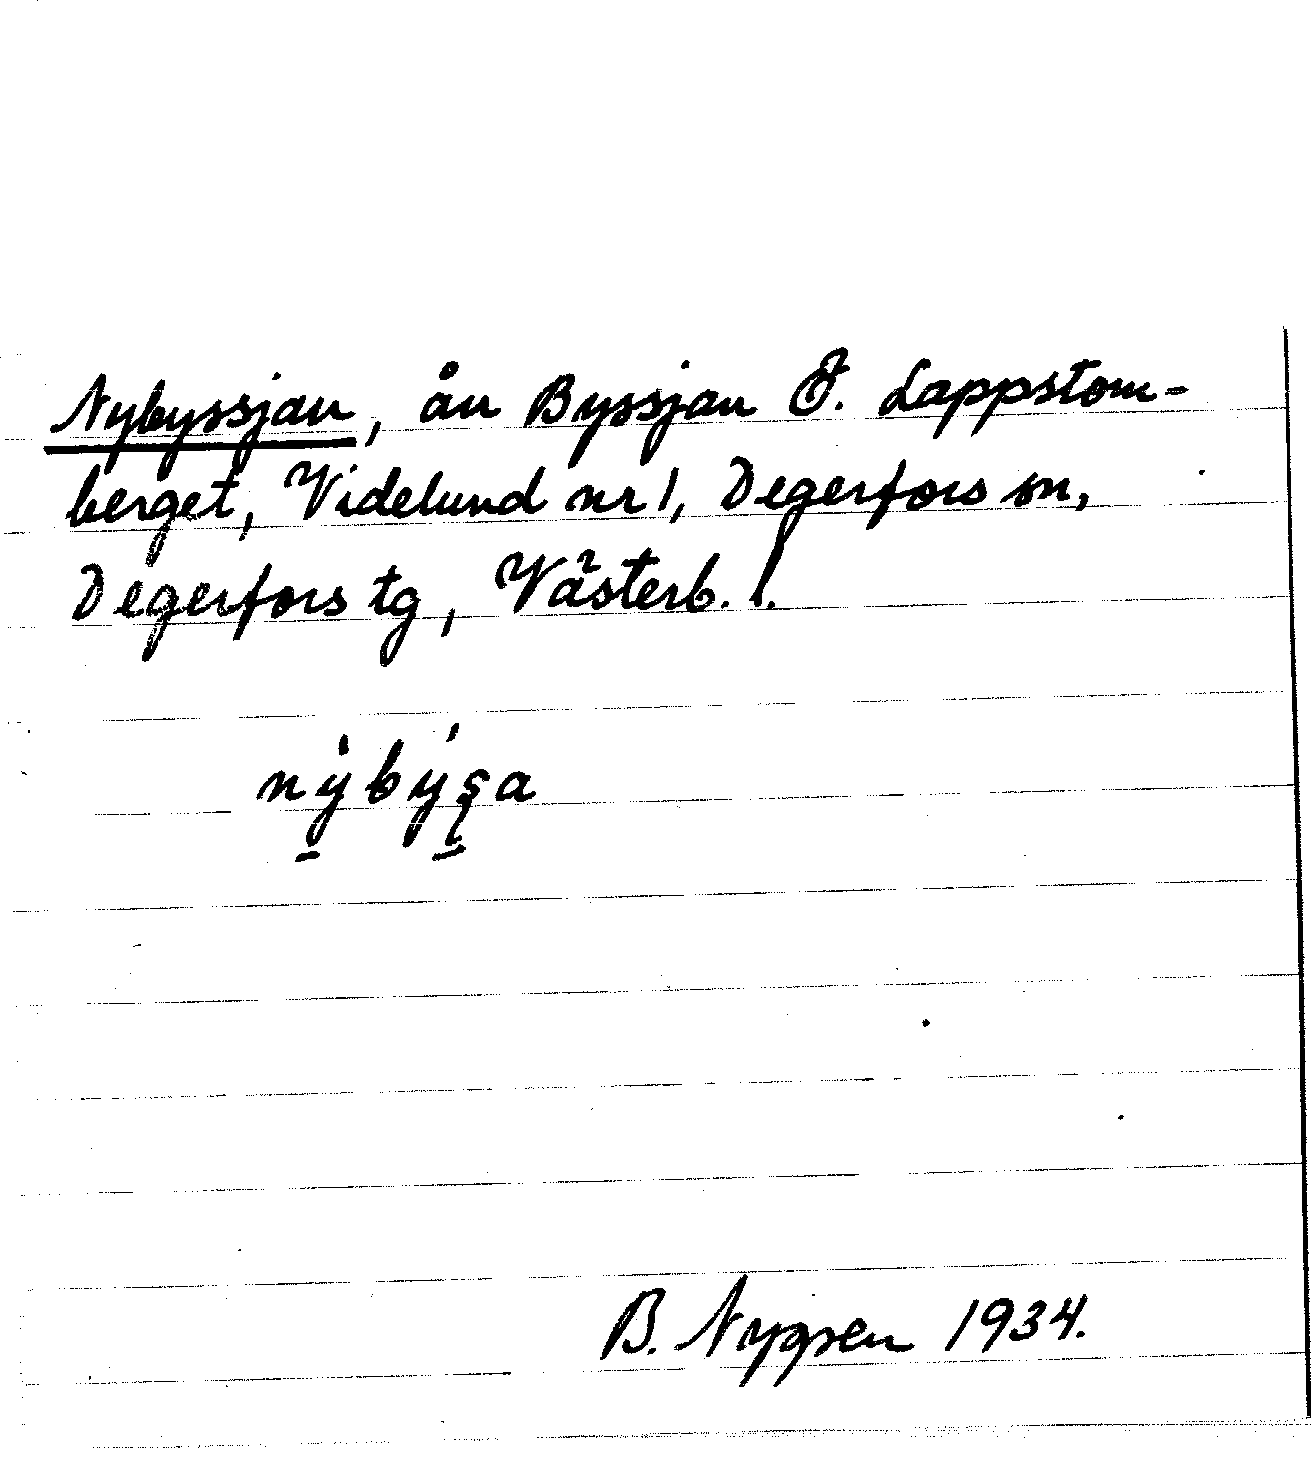 Nybyssjan, ån Byssjan Ö. Lappstom-
berget, Videlund nr 1, Degerfors sn,
Degerfors tg, Västerb. l.
nybyʂa
B. Nygren 1934.